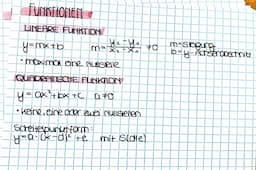 FUNKTIONEN
LINEARE FUNKTION
y=mx+b m= y₂-y₁ / x₂-x₁ ≠0 m=Steigung
b=y-Achsenabschnitt
• maximal eine Nullstelle
QUADRATISCHE FUNKTION
y= ax²+bx+c a≠0
• keine, eine oder zwei Nullstellen
Scheitelpunktform:
y=a·(x-d)²+e mit S(d|e)